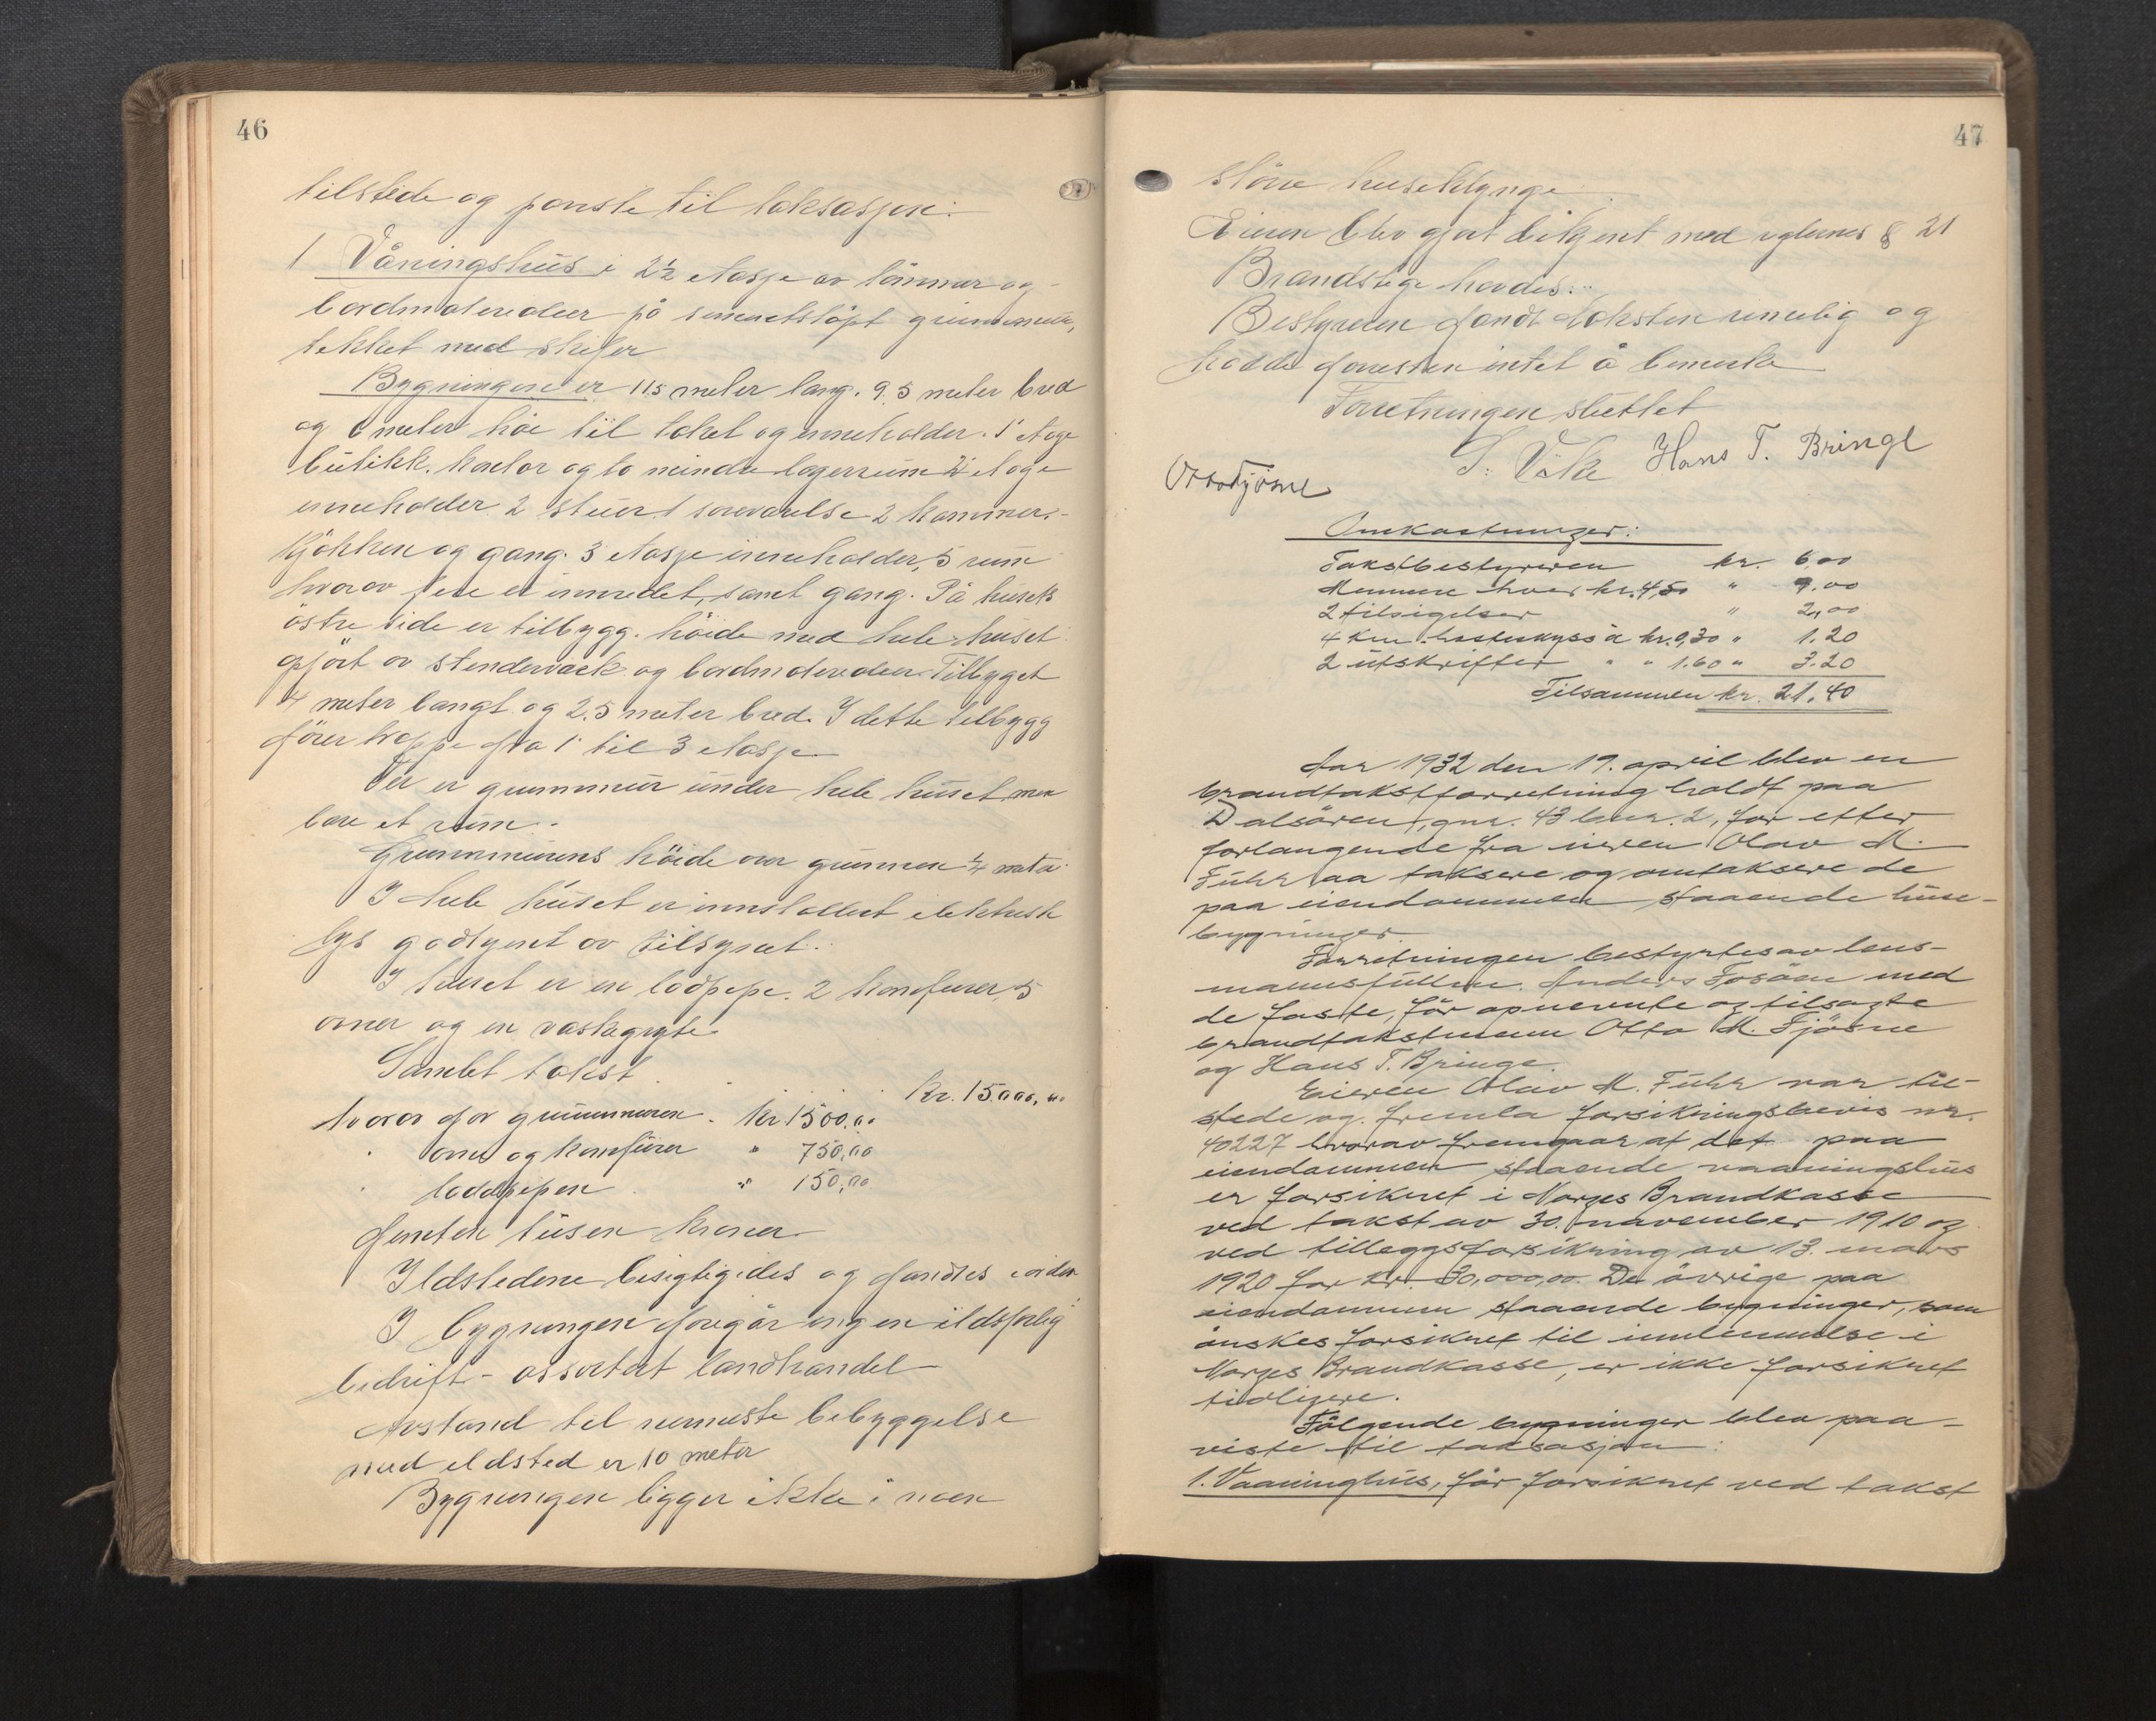 46
tilstede og pønste til taksasjon:
1 Våningshus i 2½ etasje av tømmer og
bordmaterealer på sementstøpt grunnmur,
tekket med skifer
Bygningen er 11.5 meter lang. 9.5 meter bred
og 6 meter høi til taket og inneholder. 1' etage
butikk. kontor og to mindre lagerrum 2' etage
inneholder 2 stuer 1 soveværelse 2 kammer.
Kjøkken og gang. 3 etasje inneholder, 5 rum
hvorav fire er innredet, samt gang. På husets
østre side er tilbygg. høide med hele huset
opført av stenderverk og bordmaterealer. Tilbygget
4 meter langt og 2.5 meter bred. I dette tilbygg
fører trappe fra 1' til 3 etasje
Der er grunnmur under hele huset, men
bare et rum.
Grunnmurens høide over grunnen ¼ meter
I hele huset er innstallert elektrisk
lys godkjent av tilsynet.
I huset er en lodpipe. 2 komfurer, 5
ovner og en vaskegryte
Samlet takst kr. 15.000,00
hvorav for grunnmuren kr 1500,00
" ovner og komfurer " 750,00
" loddpipen " 150,00
femten tusen kroner
Ildstedene besigtigedes og fandtes i orden
I bygningen foregår ingen ildsfarlig
bedrift - assortert landhandel
Avstand til nermeste bebyggelse
med ildsted er 10 meter
Bygningen ligger ikke i noen
47
større huseklynge
Eieren blev gjort bekjent med reglernes § 21
Brandstige havdes.
Bestyreren fandt taksten rimelig og
hadde forresten intet å bemerke
Forretningen sluttet
S. Vike Hans T. Bringe
Otto Fjøsne
Omkostninger:
Takstbestyreren kr. 6,00
Mennene hver kr. 4,50 " 9.00
2 tilsigelser " 2,00
4 km. hesteskyss à kr. 0,30 " 1.20
2 utskrifter " " 1.60 " 3.20
Tilsammen kr. 21.40
Aar 1932 den 19. april blev en
brandtakstforretning holdt paa
Dalsøren, gnr. 43 bnr. 2, for efter
forlangende fra eieren Olav M.
Fuhr aa taksere og omtaksere de
paa eiendommen staaende huse-
bygninger.
Forretningen bestyrtes av lens-
mannsfullm. Anders Fosøen med
de faste, før opnevnte og tilsagte
brandtakstmenn Otto M. Fjøsne
og Hans T. Bringe.
Eieren Olav M. Fuhr var til-
stede og fremla forsikringsbevis nr.
40227 hvorav fremgaar at det paa
eiendommen staaende vaaningshus
er forsikret i Norges Brandkasse
ved takst av 30. november 1910 og
ved tilleggsforsikring av 13. mars
1920 for kr. 30,000,00. De øvrige paa
eiendommen staaende bygninger, som
ønskes forsikret til innlemmelse i
Norges Brandkasse, er ikke forsikret
tidligere.
Følgende bygninger blev paa-
viste til taksasjon:
1. Vaaninghus, før forsikret ved takst